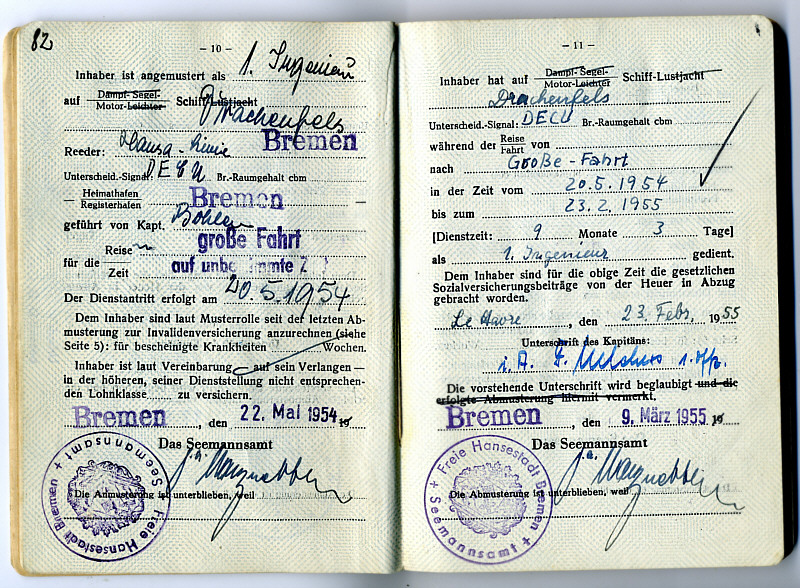 82
– 10 –
Inhaber ist angemustert als 1. Ingenieur
Dampf- Segel-
auf Motor-Leichter Schiff Lustjacht Drachenfels
Bremen
Reeder: Hansa-Linie
Unterscheid.-Signal: DECU Br.-Raumgehalt cbm
Heimathafen
Registerhafen Bremen
geführt von Kapt.
große Fahrt
Reise
für die
Zeit auf unbestimmte
Der Dienstantritt erfolgt am 20.5.1954
Dem Inhaber sind laut Musterrolle seit der letzten Ab-
musterung zur Invalidenversicherung anzurechnen (siehe
Seite 5): für bescheinigte Krankheiten Wochen.
Inhaber ist laut Vereinbarung – auf sein Verlangen –
in der höheren, seiner Dienststellung nicht entsprechen-
den Lohnklasse zu versichern.
Bremen, den 22. Mai 1954 19
Das Seemannsamt
Die Anmusterung ist unterblieben, weil
Freie Hansestadt Bremen + Seemannsamt +
– 11 –
Inhaber hat auf Dampf- Segel- Schiff Lustjacht
Motor-Leichter
Drachenfels
Unterscheid.-Signal: DECU Br.-Raumgehalt cbm
während der Reise von
Fahrt
nach Große-Fahrt
in der Zeit vom 20.5.1954
bis zum 23.2.1955
[Dienstzeit: 9 Monate 3 Tage]
als 1. Ingenieur gedient.
Dem Inhaber sind für die obige Zeit die gesetzlichen
Sozialversicherungsbeiträge von der Heuer in Abzug
gebracht worden.
Le Havre, den 23. Febr. 1955
Unterschrift des Kapitäns:
i. A. 1. Off.
Die vorstehende Unterschrift wird beglaubigt und die
erfolgte Abmusterung hiermit vermerkt.
Bremen, den 9. März 1955 19
Das Seemannsamt
Die Abmusterung ist unterblieben, weil
Freie Hansestadt Bremen + Seemannsamt +